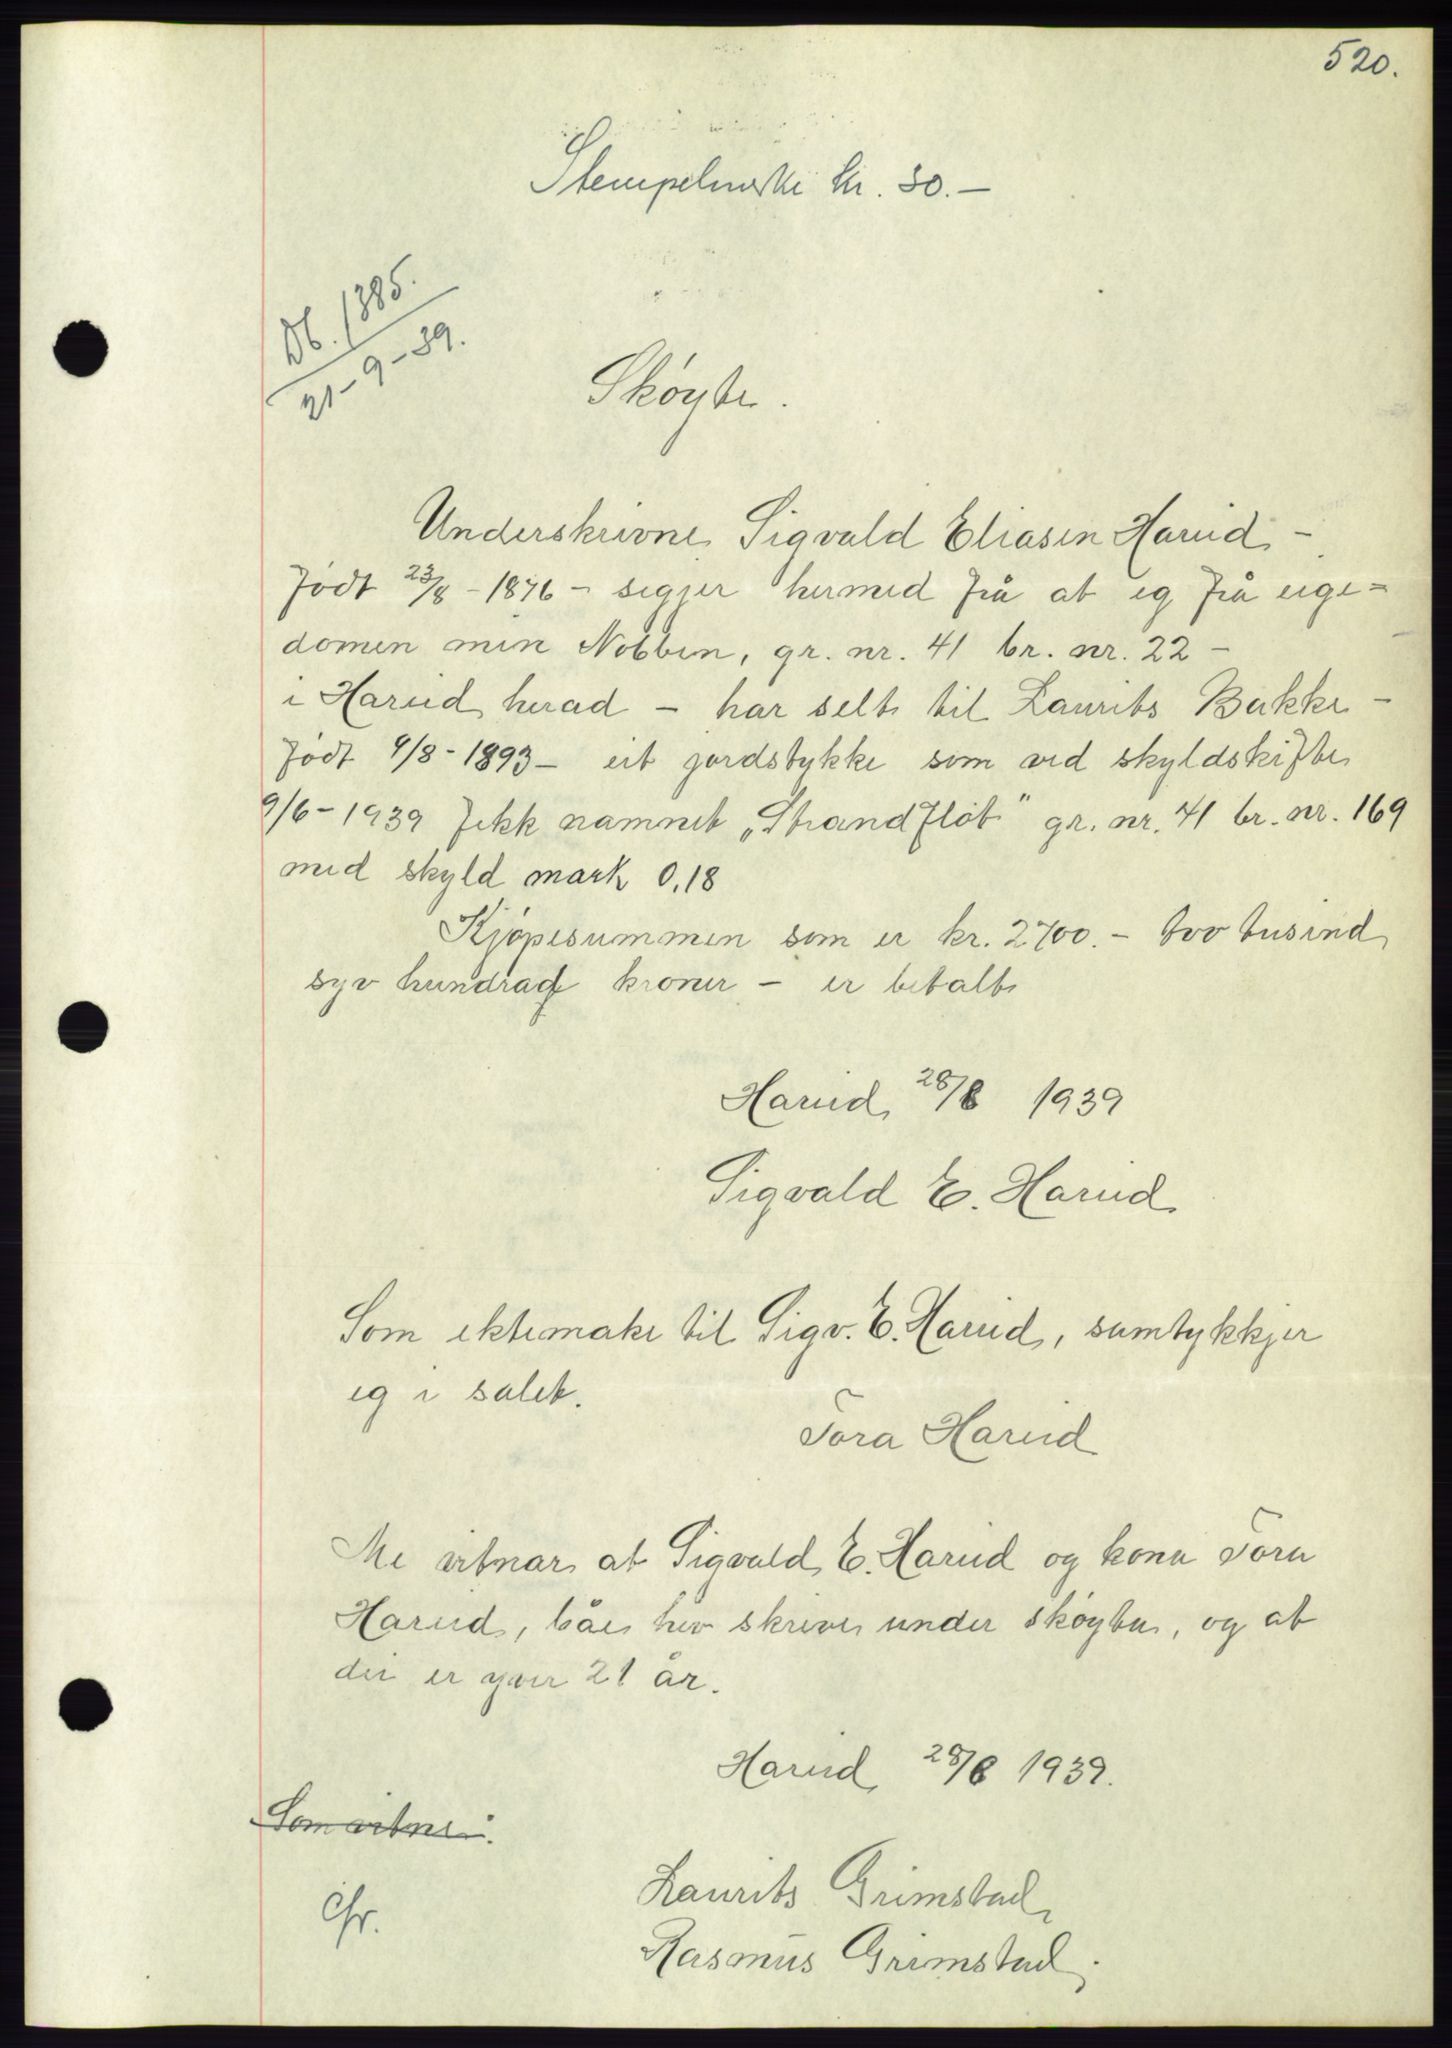 520.
Stempelmerke kr. 30.—
Db. 1385.
21-9-39.
Skøyte.
Underskrivne Sigvald Eliasen Hareid –
født 23/8 - 1876 – segjer hermed frå at eg frå eige=
domen min Nobben, gr. nr. 41 br. nr. 22 –
i Hareid herad – har selt til Laurits Bakke –
født 9/8 - 1893 – eit jordstykke som ved skyldskifte
9/6 - 1939 fekk namnet „Strandflöt“ gr. nr. 41 br. nr. 169
med skyld mark 0,18
Kjøpesummen som er kr. 2700. – tvo tusind
syv hundrad kroner – er betalt
Hareid 28/8 1939
Sigvald E. Hareid
Som ektemake til Sigv. E. Hareid, samtykkjer
eg i salet.
Tora Hareid
Me vitnar at Sigvald E. Hareid og kona Tora
Hareid, båe hev skrive under skøyte, og at
dei er yver 21 år.
Hareid 28/8 1939.
Som vitne:
Laurits Grimstad
Rasmus Grimstad.